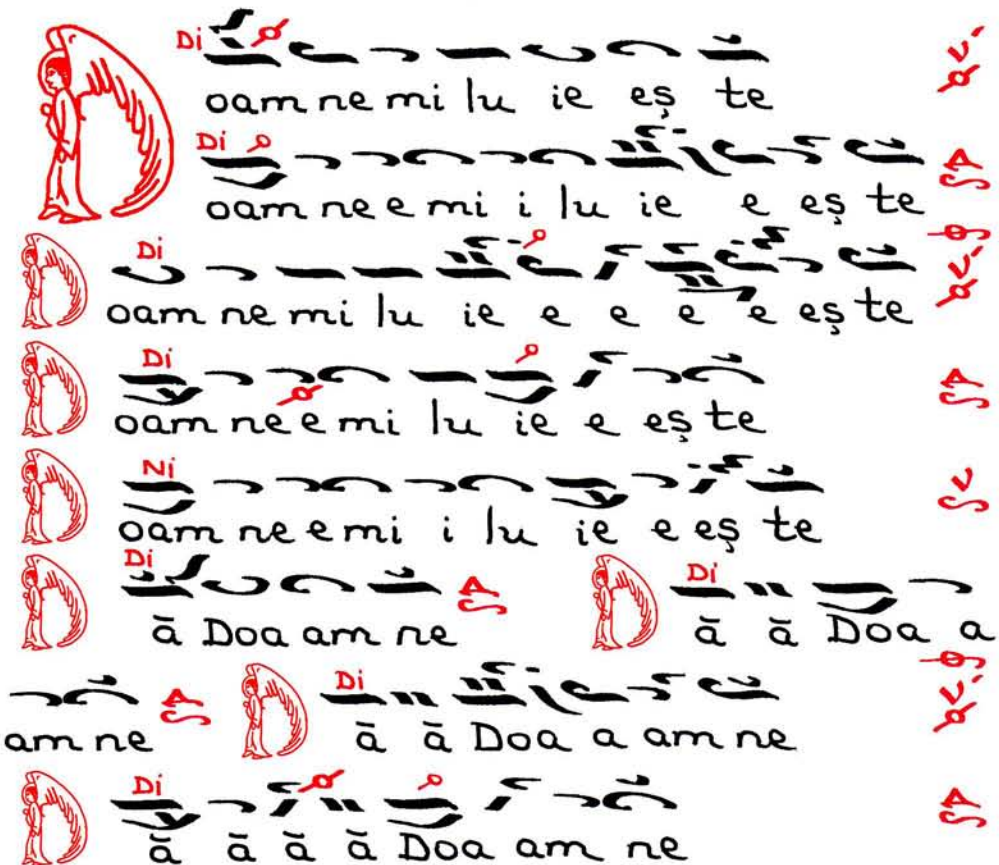 Di
oam ne mi lu ie eş te
Di
oam ne e mi i lu ie e eş te
Di
oam ne mi lu ie e e e e eş te
Di
oam ne e mi lu ie e eş te
Ni
oam ne e mi i lu ie e eş te
Di Di
ă Doa am ne ă ă Doa a
Di
am ne ă ă Doa a am ne
Di
ă ă ă ă Doa am ne